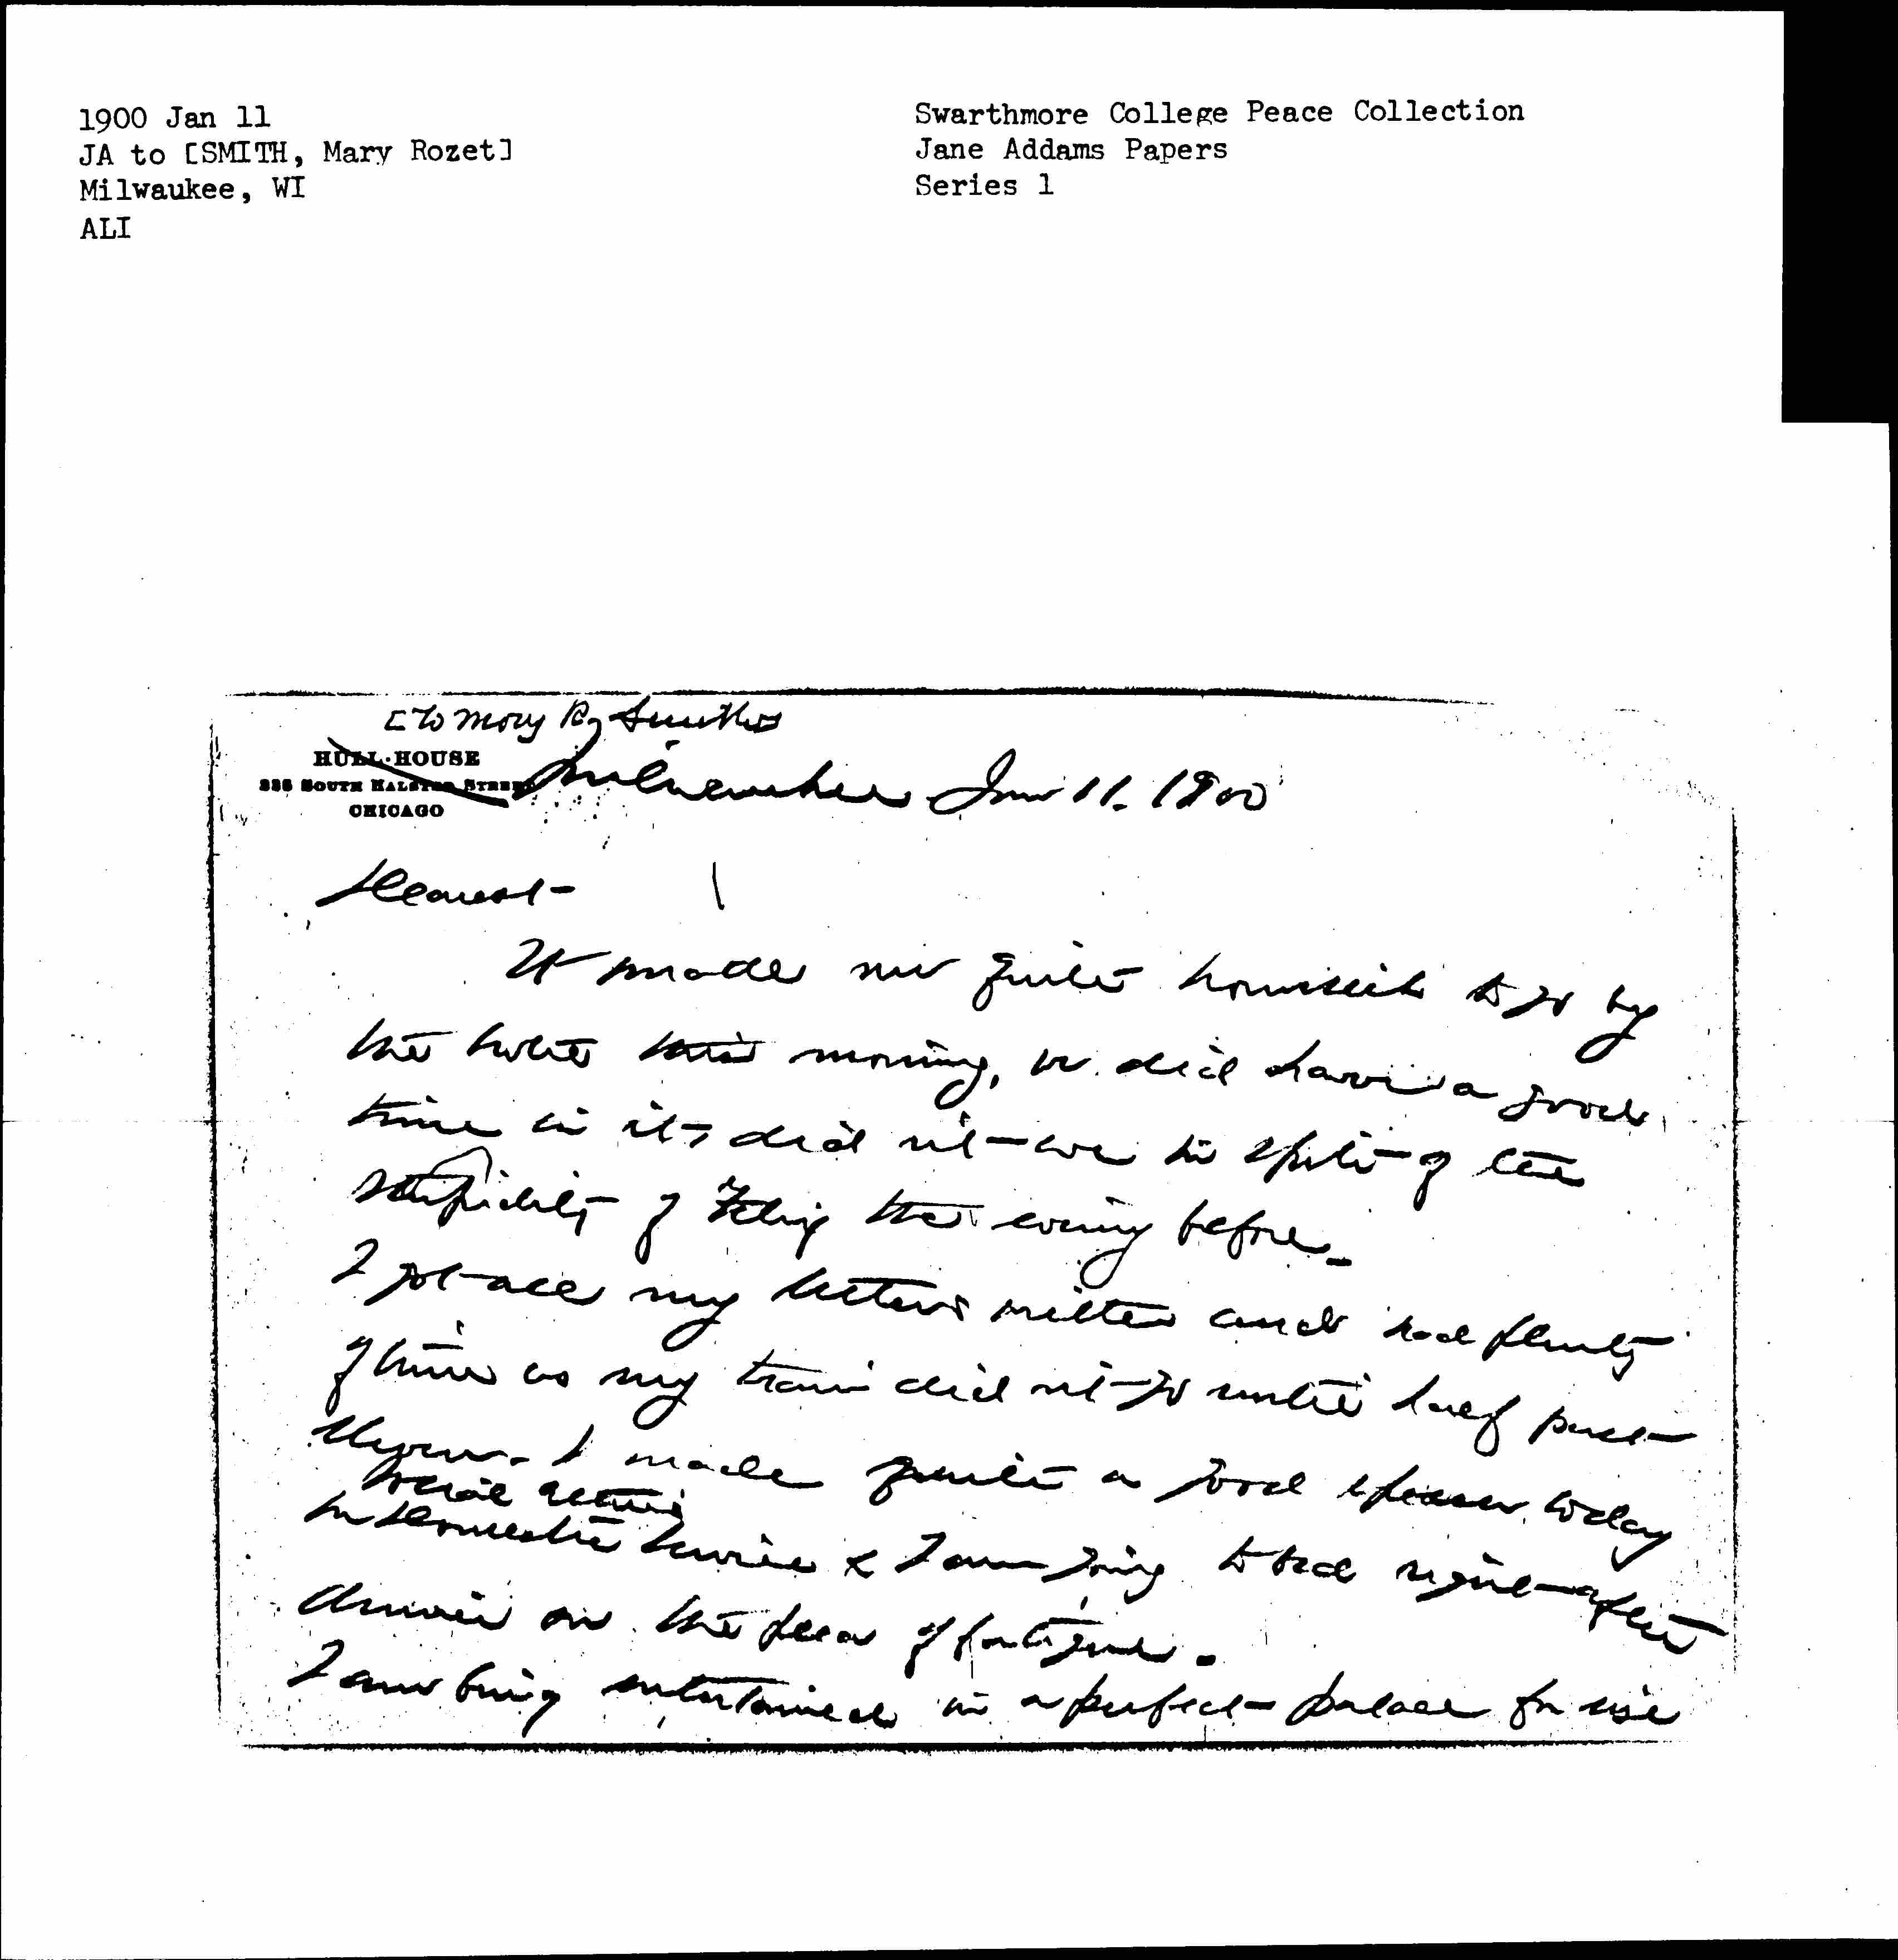 1900 Jan 11
JA to [SMITH, Mary Rozet]
Milwaukee, WI
ALI
Swarthmore College Peace Collection
Jane Addams Papers
Series 1
[to Mary R. Smith]
HULL·HOUSE
335 SOUTH HALSTED STREET
CHICAGO
Milwaukee Jan 11. 1900
Dearest-
It made me quite homesick to go by
the hotel this morning, we did have a good
time in it, did not we in spite of the
stupidity of the evening before.
I got all my letters written and had plenty
of time as my train did not go until half past
eleven. I made quite a good speech today
Social
in Domestic Service & I am going to bed right after
dinner on the plea of fatigue.
I am being entertained in a perfect palace for